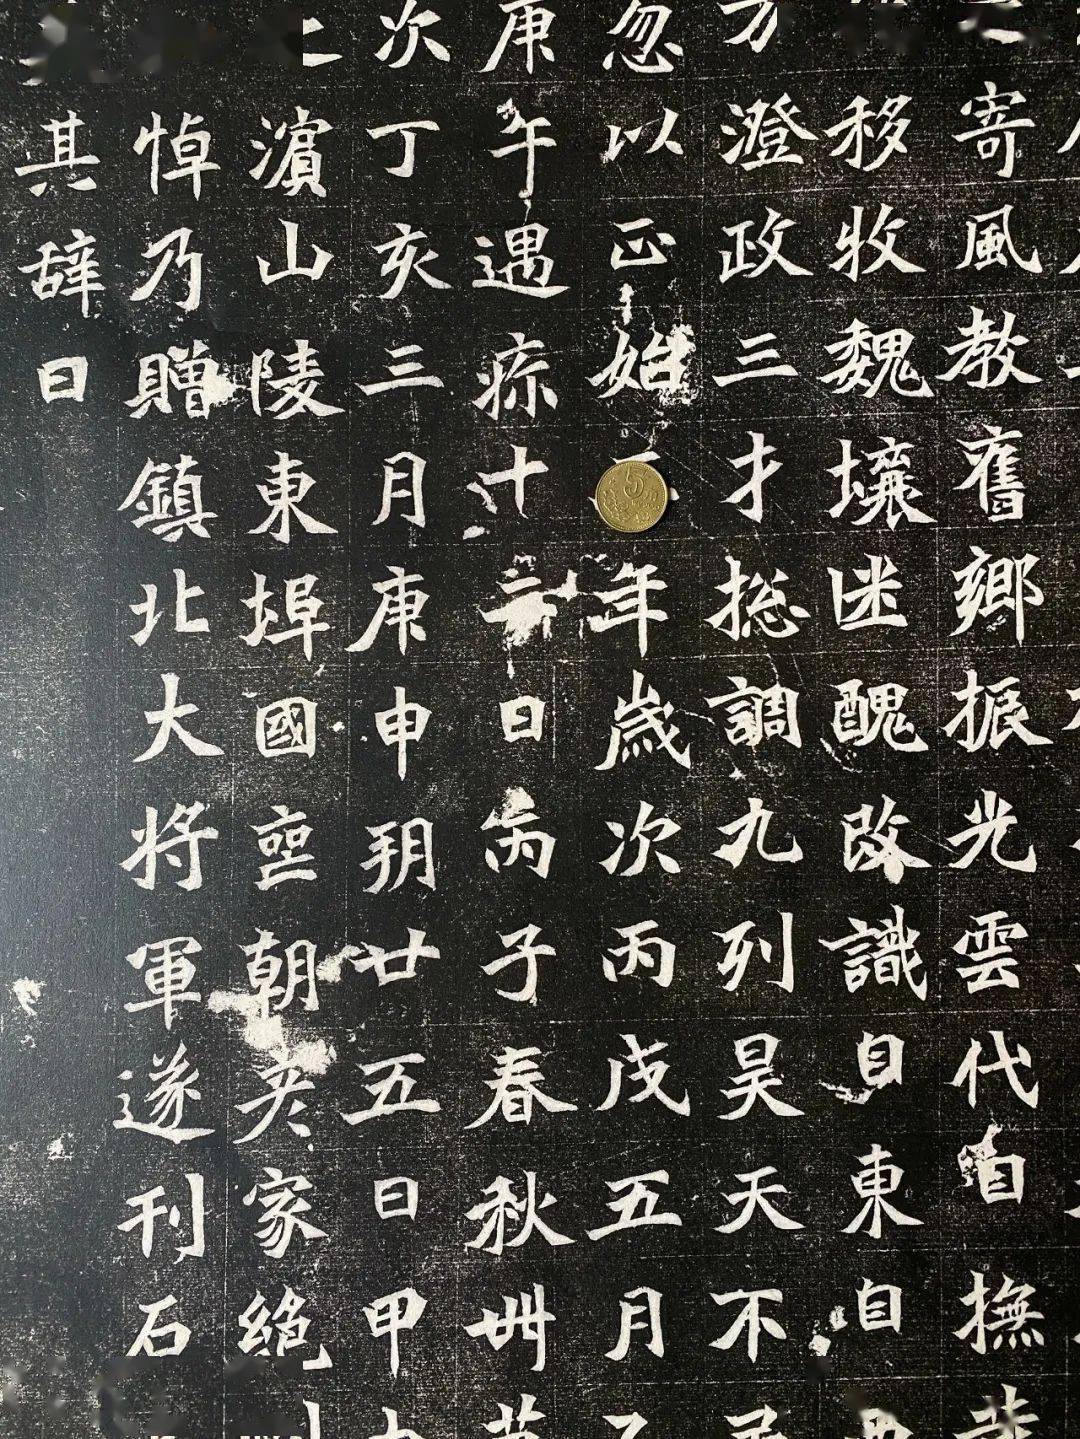 寄風教舊鄉振光雲代自撫
移牧魏壤迷醜改識自東自
方澄政三才捴調九列昊天不
忽以正始年歲次丙戌五月
庚午遇疹十二日丙子春秋卌
次丁亥三月庚申玥廿五日甲
濵山陵東埠國壺朝夾家絕
悼乃贈鎮北大将軍遂刊石
其辞曰
5